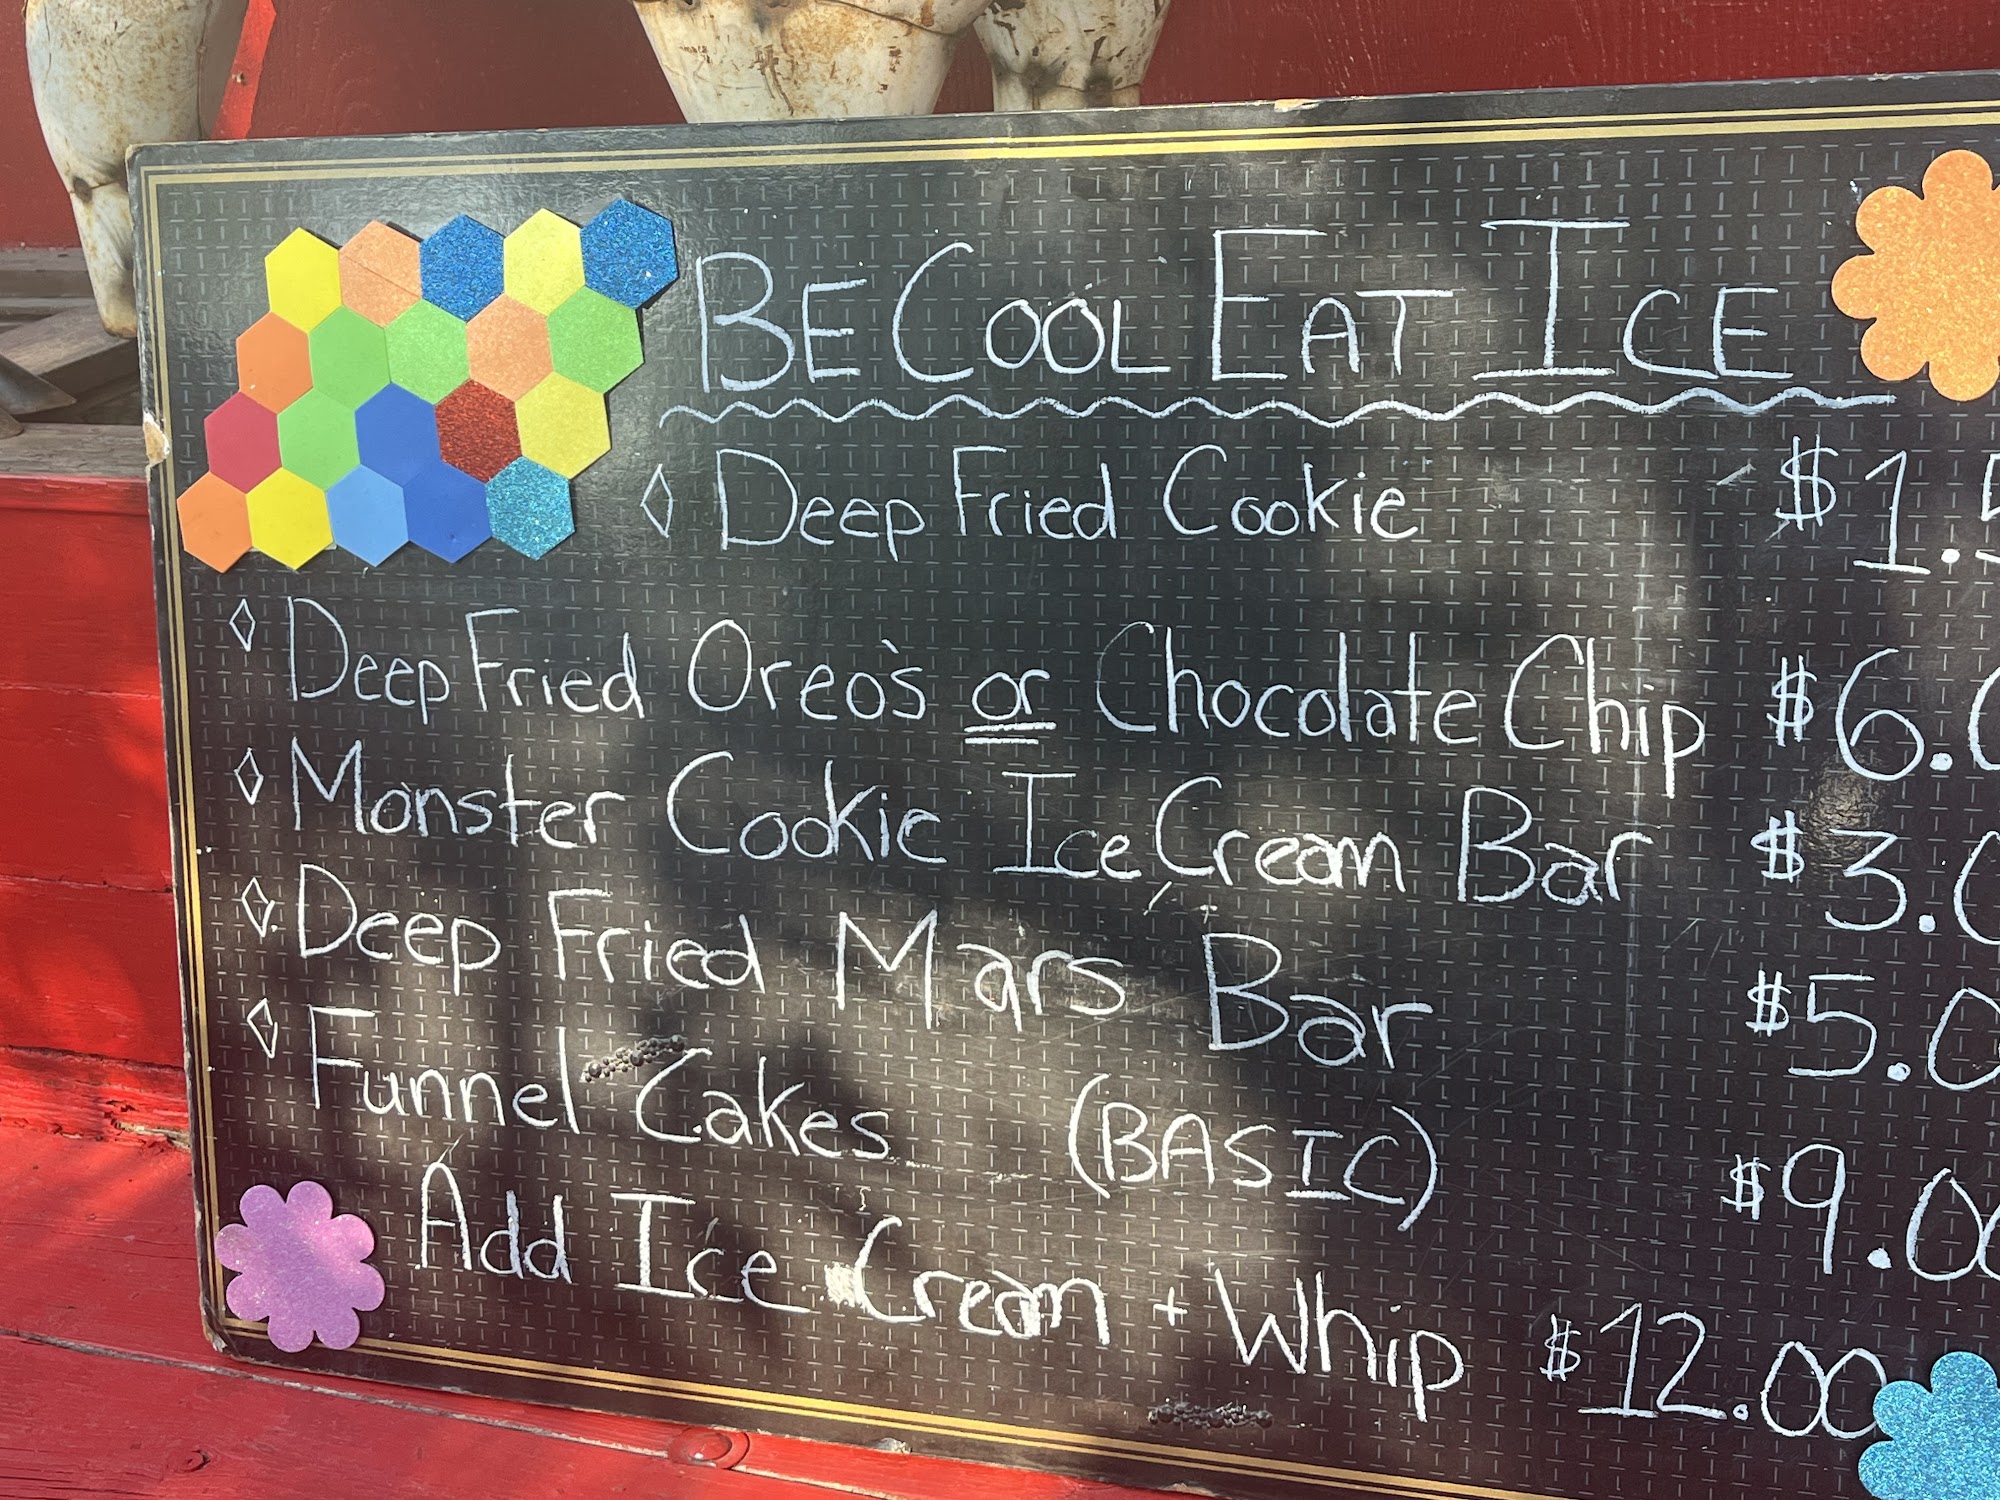 BE COOL EAT ICE
Deep Fried Cookie $1.5
Deep Fried Oreo's or Chocolate Chip $6.0
Monster Cookie Ice Cream Bar $3.0
Deep Fried Mars Bar $5.0
Funnel Cakes (BASIC) $9.00
Add Ice Cream + Whip $12.00